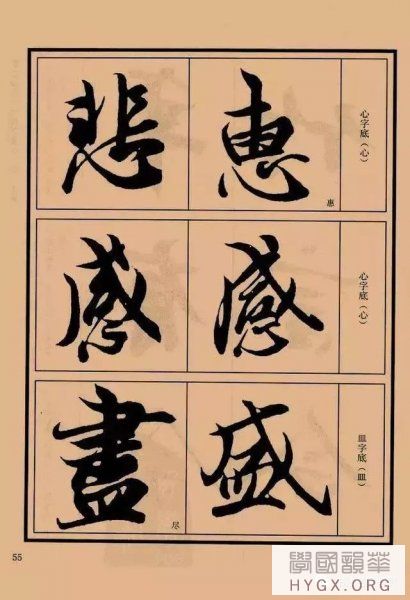 心字底（心）
惠
惠
悲
心字底（心）
感
感
皿字底（皿）
盛
盡
尽
55
華韻國學
HYGX.ORG